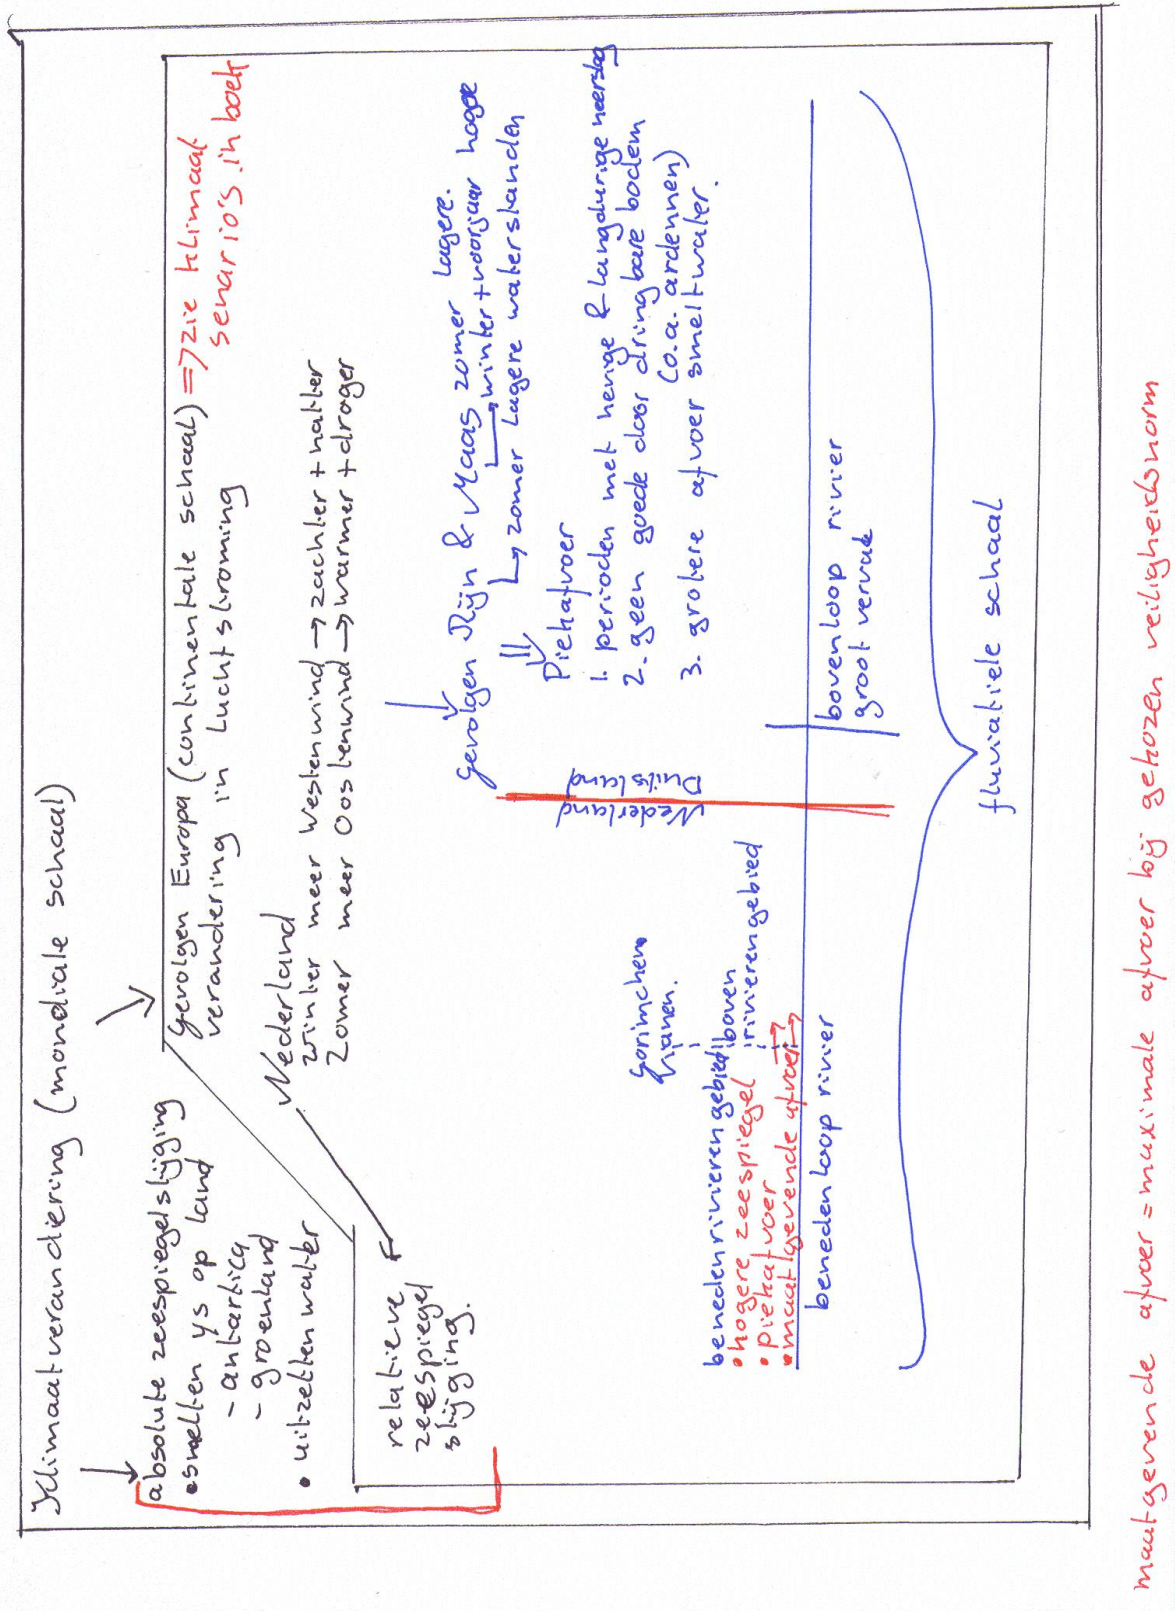 Klimaatverandiering (mondiale schaal)
absolute zeespiegelstijging
• smelten ys op land
- antartica
- groenland
• uitzetten water
relatieve
zeespiegel
stijging.
gevolgen Europa (continentale schaal) => zie klimaat
senario's in boek
verandering in luchtstroming
Nederland
winter meer westenwind → zachter + natter
Zomer meer Oostenwind → warmer + droger
gevolgen Rijn & Maas zomer lagere.
→ winter + voorjaar hogere
→ zomer lagere waterstanden
Piekafvoer
1. perioden met hevige & langdurige neerslag
2. geen goede door dringbare bodem
(o.a. ardennen)
3. grotere afvoer smeltwater.
Nederland
Duitsland
Gorinchem
Vianen.
benedenrivierengebied
boven
rivierengebied
• hogere zeespiegel
• Piekafvoer
• maatgevende afvoer →
benedenloop rivier
bovenloop rivier
groot verval
fluviatiele schaal
maatgevende afvoer = maximale afvoer bij gekozen veiligheidsnorm